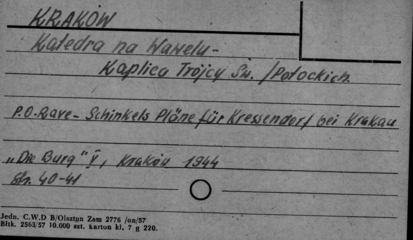 KRAKÓW
Katedra na Wawelu -
Kaplica Trójcy Św. /Potockich
P.O. Rave - Schinkels Pläne für Kressendorf bei Krakau
"Die Burg" V, Kraków 1944
str. 40-41
Jedn. C.W.D B/Olsztyn Zam 2776 /an/57
Bltk. 2563/57 10.000 szt. karton kl. 7 g 220.